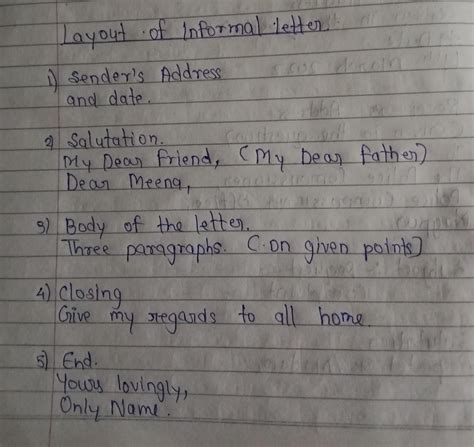 Layout of Informal letter
1) Sender's Address
and date.
2) Salutation.
My Dear friend, (My Dear father)
Dear Meena,
3) Body of the letter.
Three paragraphs. (on given points)
4) Closing
Give my regards to all home.
5) End.
Yours lovingly,
Only Name.